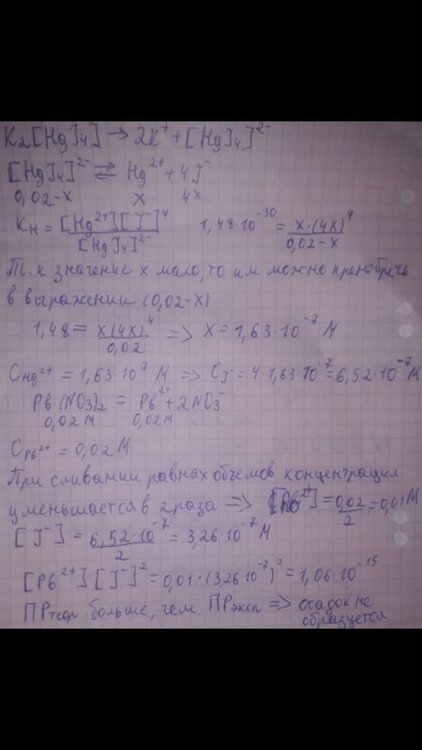 K2[HgJ4] → 2K⁺ + [HgJ4]²⁻
[HgJ4]²⁻ ⇄ Hg²⁺ + 4J⁻
0,02-x x 4x
Kн = [Hg²⁺][J⁻]⁴ / [HgJ4]²⁻ 1,48·10⁻³⁰ = x·(4x)⁴ / 0,02-x
Т.к значение x мало, то им можно пренебречь
в выражении (0,02-x)
1,48 = x(4x)⁴ / 0,02 => x = 1,63·10⁻⁷ М
CHg²⁺ = 1,63·10⁻⁷ М => CJ⁻ = 4·1,63·10⁻⁷ = 6,52·10⁻⁷ М
Pb(NO3)2 = Pb²⁺ + 2NO3⁻
0,02 М 0,02 М
CPb²⁺ = 0,02 М
При сливании равных объемов концентрация
уменьшается в 2 раза => [Pb²⁺] = 0,02 / 2 = 0,01 М
[J⁻] = 6,52·10⁻⁷ / 2 = 3,26·10⁻⁷ М
[Pb²⁺][J⁻]² = 0,01·(3,26·10⁻⁷)² = 1,06·10⁻¹⁵
ПРтеор больше, чем ПРэксп => осадок не
образуется